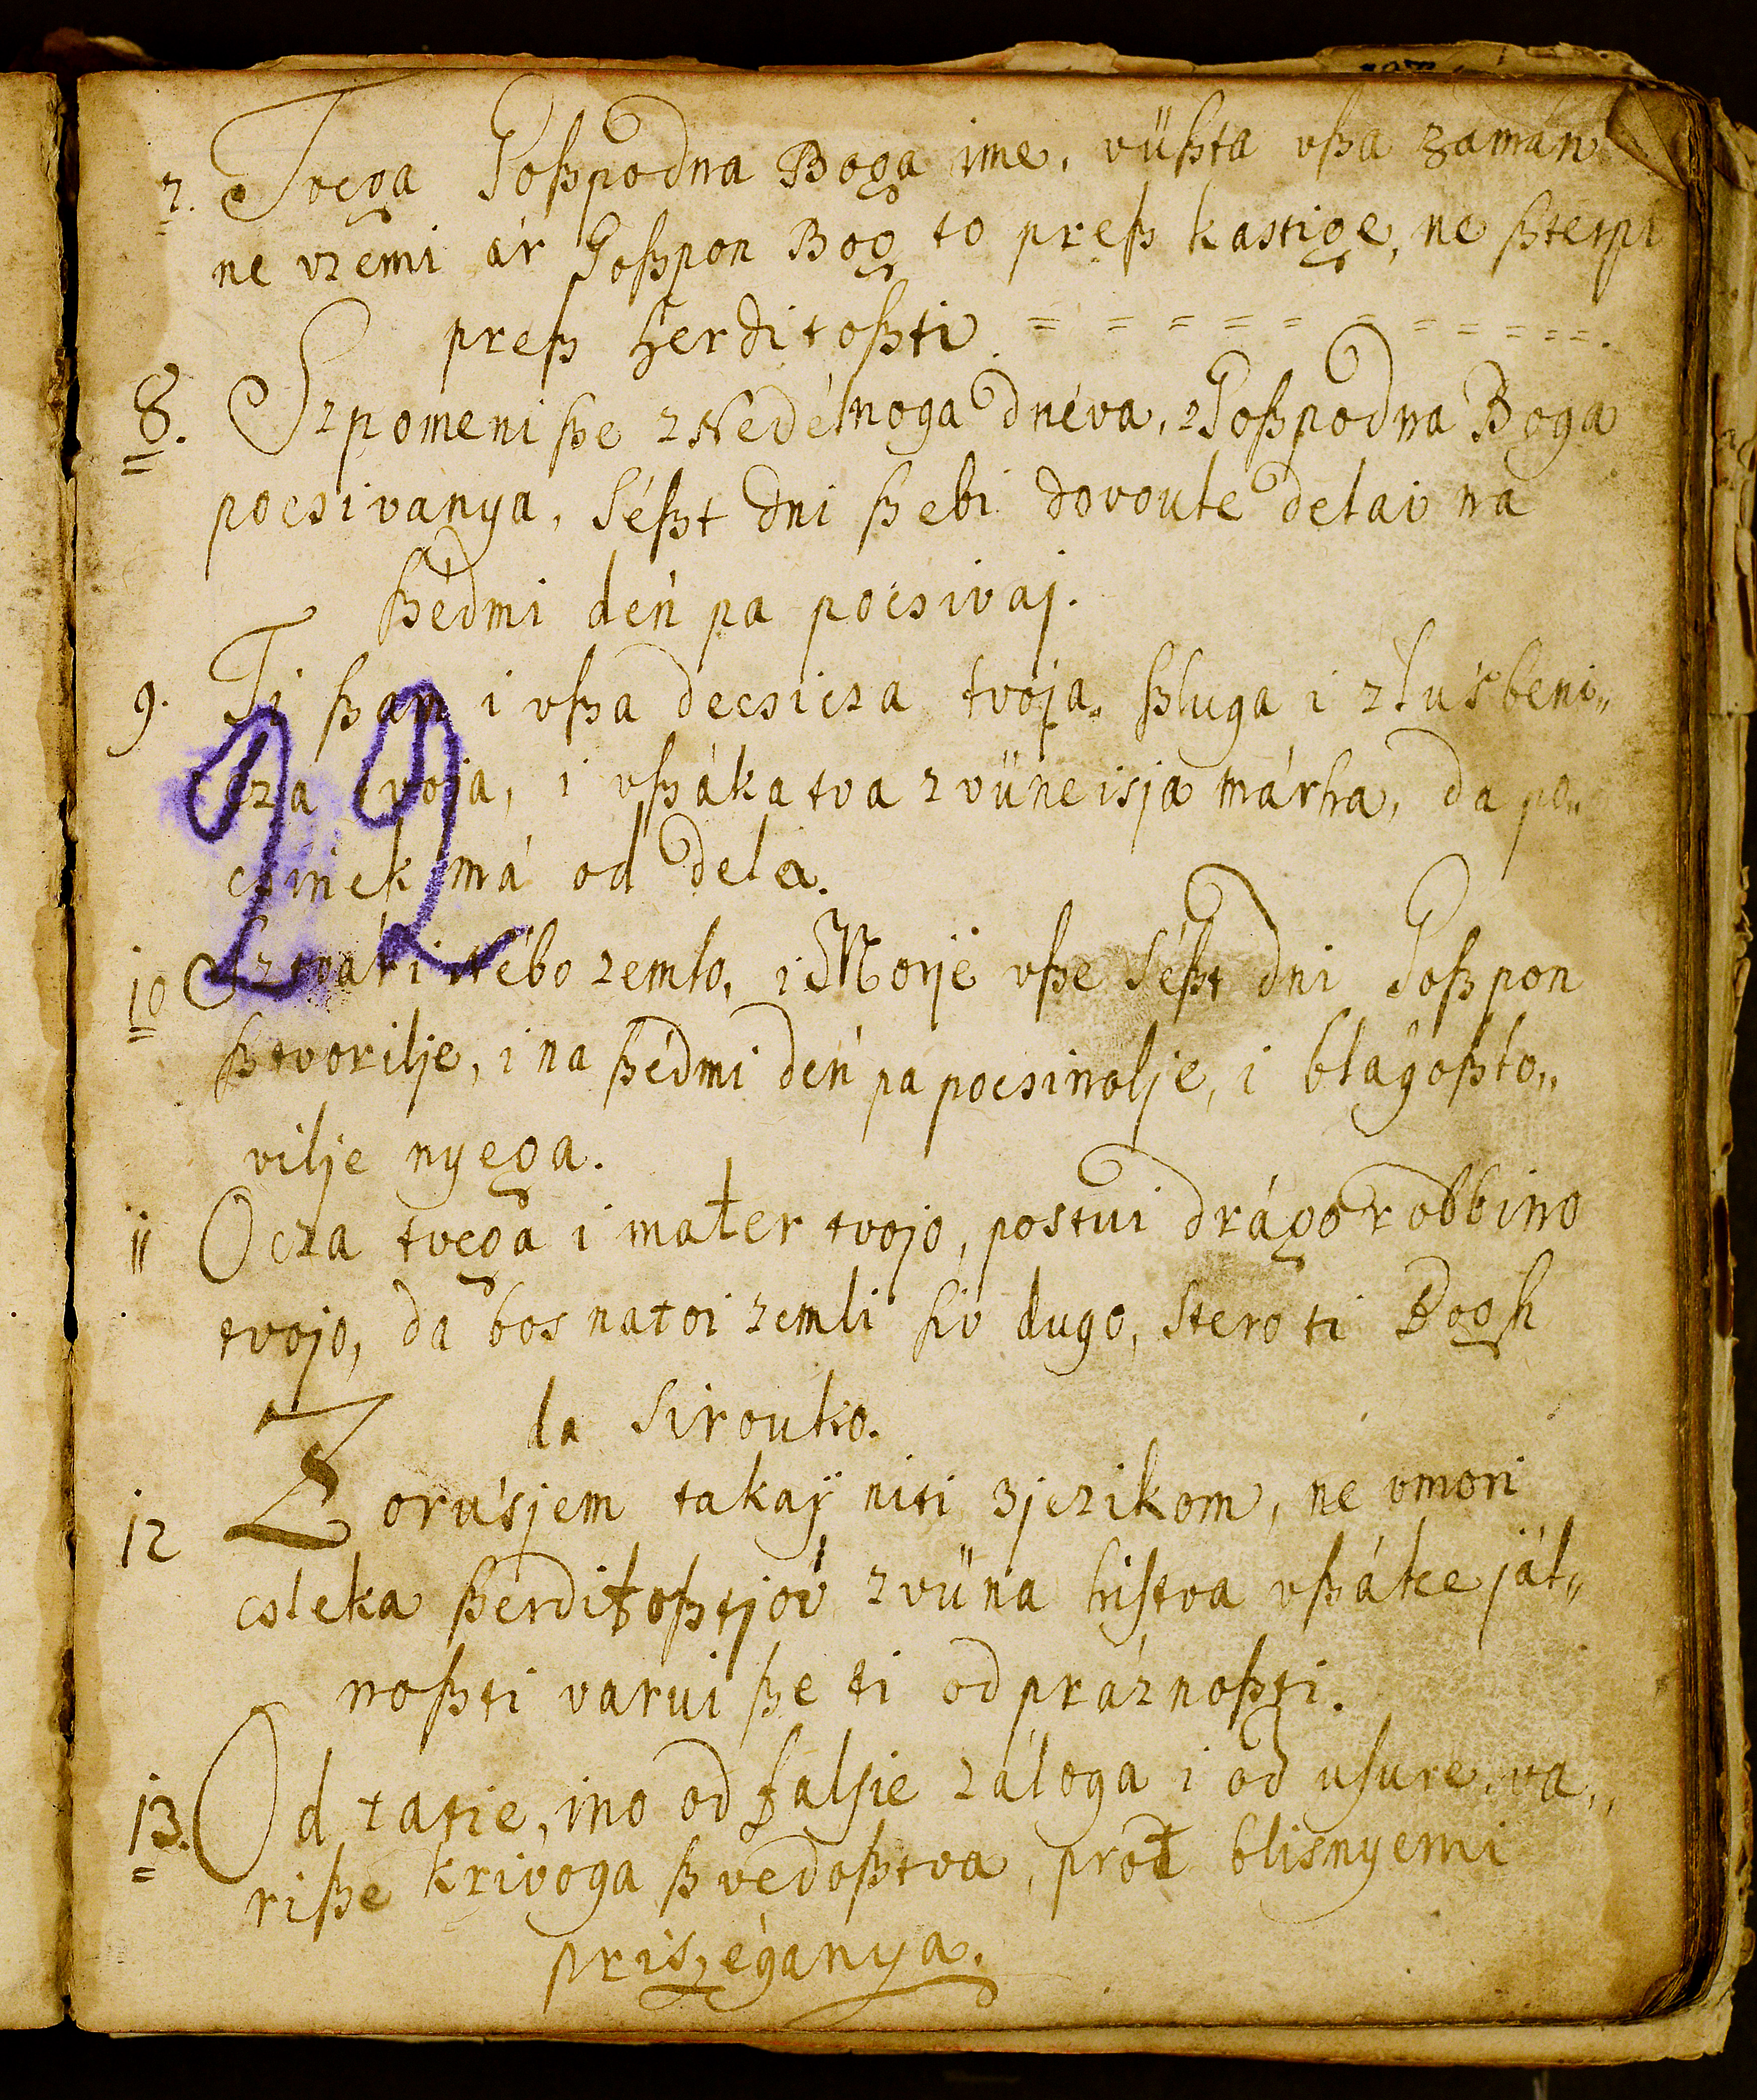 7. Tvega Goßpodna Boga ime, vüßta vßa zamán
ne vzemi ár Goßpon Bog to preß kastige, ne ßterpi
preß ßerditoßti. = = = = = = = = = = =.
8. Szpomeni ße z Nedélnoga dnéva, z Goßpodna Boga
pocsivanya, Séßt dni ßebi dovoule delai na
ßédmi dén pa pocsivaj.
9. Ti ßam i vßa decsicza tvoja, ßluga i zlu'sbeni„
cza tvoja, i vßáka tva zvüneisja márha, da po„
csinek má od dela.
22
10 Nébo zemlo, i Morjé vße Séßt dni Goßpon
ßtvorilje, i na ßédmi dén pa pocsinolje, i blágoßlo„
vilje nyega.
11 Ocza tvega i mater tvojo, postui drágo rodbino
tvojo, da bos natoi zemli siv dugo, stero ti Bogh
da Sirouko.
12 Z oru'sjem takaj niti zjezikom, ne vmori
csleka ßerditoßtjov zvüna histva vßáke jál„
noßti varui ße ti od práznoßti.
13. Od tatie, ino od falsie záloga i od usure, va„
riße krivoga ßvedoßtva, prot blisnyemi
priszéganya.